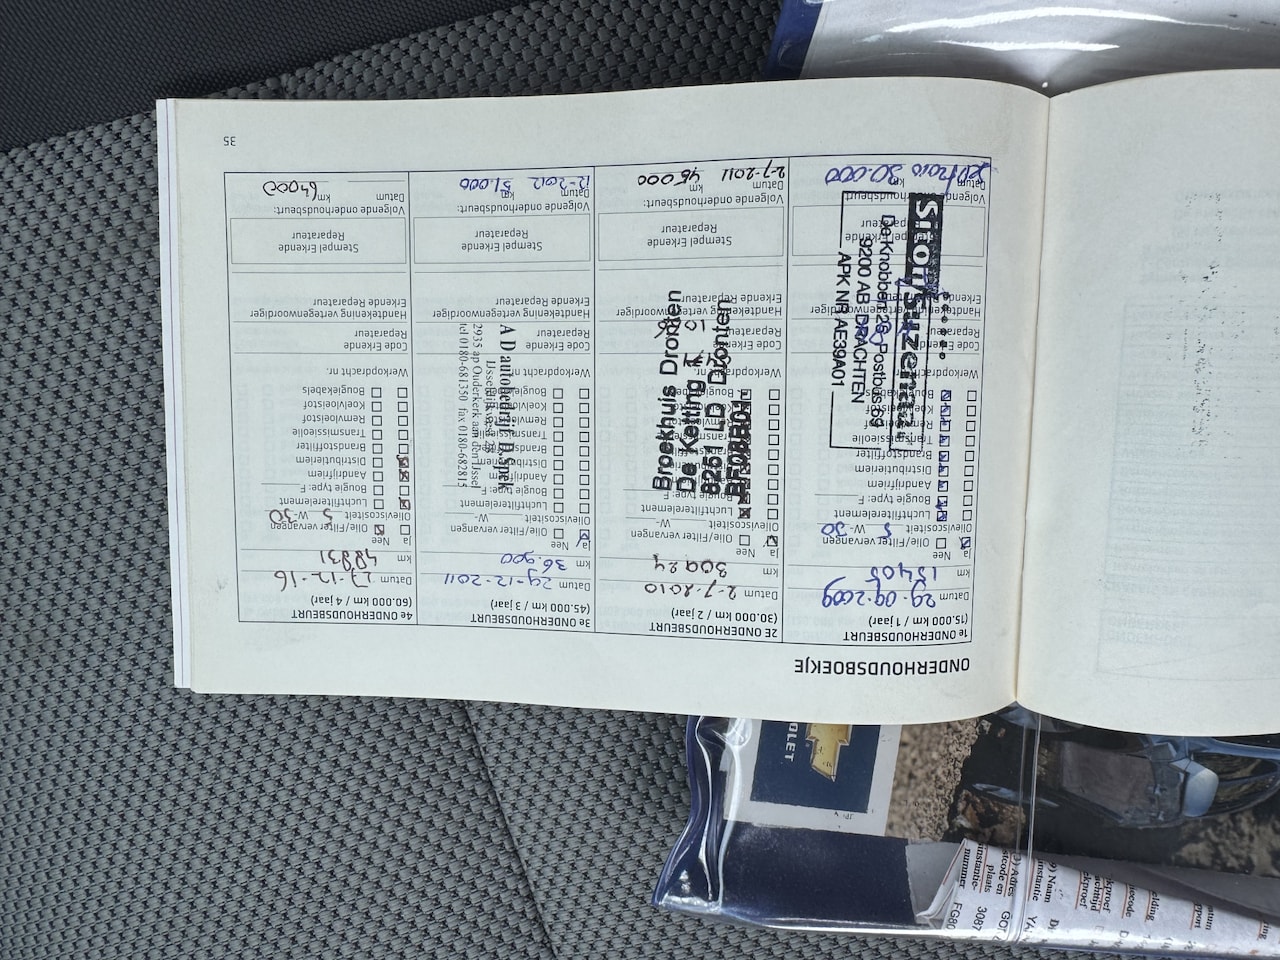 ONDERHOUDSBOEKJE
1e ONDERHOUDSBEURT
(15.000 km / 1 jaar)
Datum 29-09-2009
km 15405
Ja Nee
Olie/Filter vervangen
Olieviscositeit 5 W- 30
Luchtfilterelement
Bougie type: F
Aandrijfriem
Distributieriem
Brandstoffilter
Transmissieolie
Remvloeistof
Koelvloeistof
Bougiekabels
Werkopdracht nr.
Code Erkende
Reparateur
Handtekening vertegenwoordiger
Erkende Reparateur
Sinot Suzenaar
De Knobben 25 Postbus 69
9200 AB DRACHTEN
APK NR AE39A01
Volgende onderhoudsbeurt:
Datum km
2010 30.000
2E ONDERHOUDSBEURT
(30.000 km / 2 jaar)
Datum 2-7-2010
km 30924
Ja Nee
Olie/Filter vervangen
Olieviscositeit W-
Luchtfilterelement
Bougie type: F
Werkopdracht nr.
Code Erkende
Reparateur
Handtekening vertegenwoordiger
Erkende Reparateur
Broekhuis Dronten
De Ketting 1
8251 LD Dronten
Stempel Erkende
Reparateur
Volgende onderhoudsbeurt:
Datum km
2-7-2011 45000
3e ONDERHOUDSBEURT
(45.000 km / 3 jaar)
Datum 29-12-2011
km 36.900
Ja Nee
Olie/Filter vervangen
Olieviscositeit W-
Luchtfilterelement
Bougie type: F
Aandrijfriem
Distributieriem
Brandstoffilter
Transmissieolie
Remvloeistof
Koelvloeistof
Bougiekabels
Werkopdracht nr.
Code Erkende
Reparateur
Handtekening vertegenwoordiger
Erkende Reparateur
A D autobedrijf
2935 ap Ouderkerk aan den IJssel
tel 0180-681350 fax 0180-682813
Stempel Erkende
Reparateur
Volgende onderhoudsbeurt:
Datum km
12-2012 51.000
4e ONDERHOUDSBEURT
(60.000 km / 4 jaar)
Datum 27-12-16
km 48831
Ja Nee
Olie/Filter vervangen
Olieviscositeit 5 W- 30
Luchtfilterelement
Bougie type: F
Aandrijfriem
Distributieriem
Brandstoffilter
Transmissieolie
Remvloeistof
Koelvloeistof
Bougiekabels
Werkopdracht nr.
Code Erkende
Reparateur
Handtekening vertegenwoordiger
Erkende Reparateur
Stempel Erkende
Reparateur
Volgende onderhoudsbeurt:
Datum km
64000
35